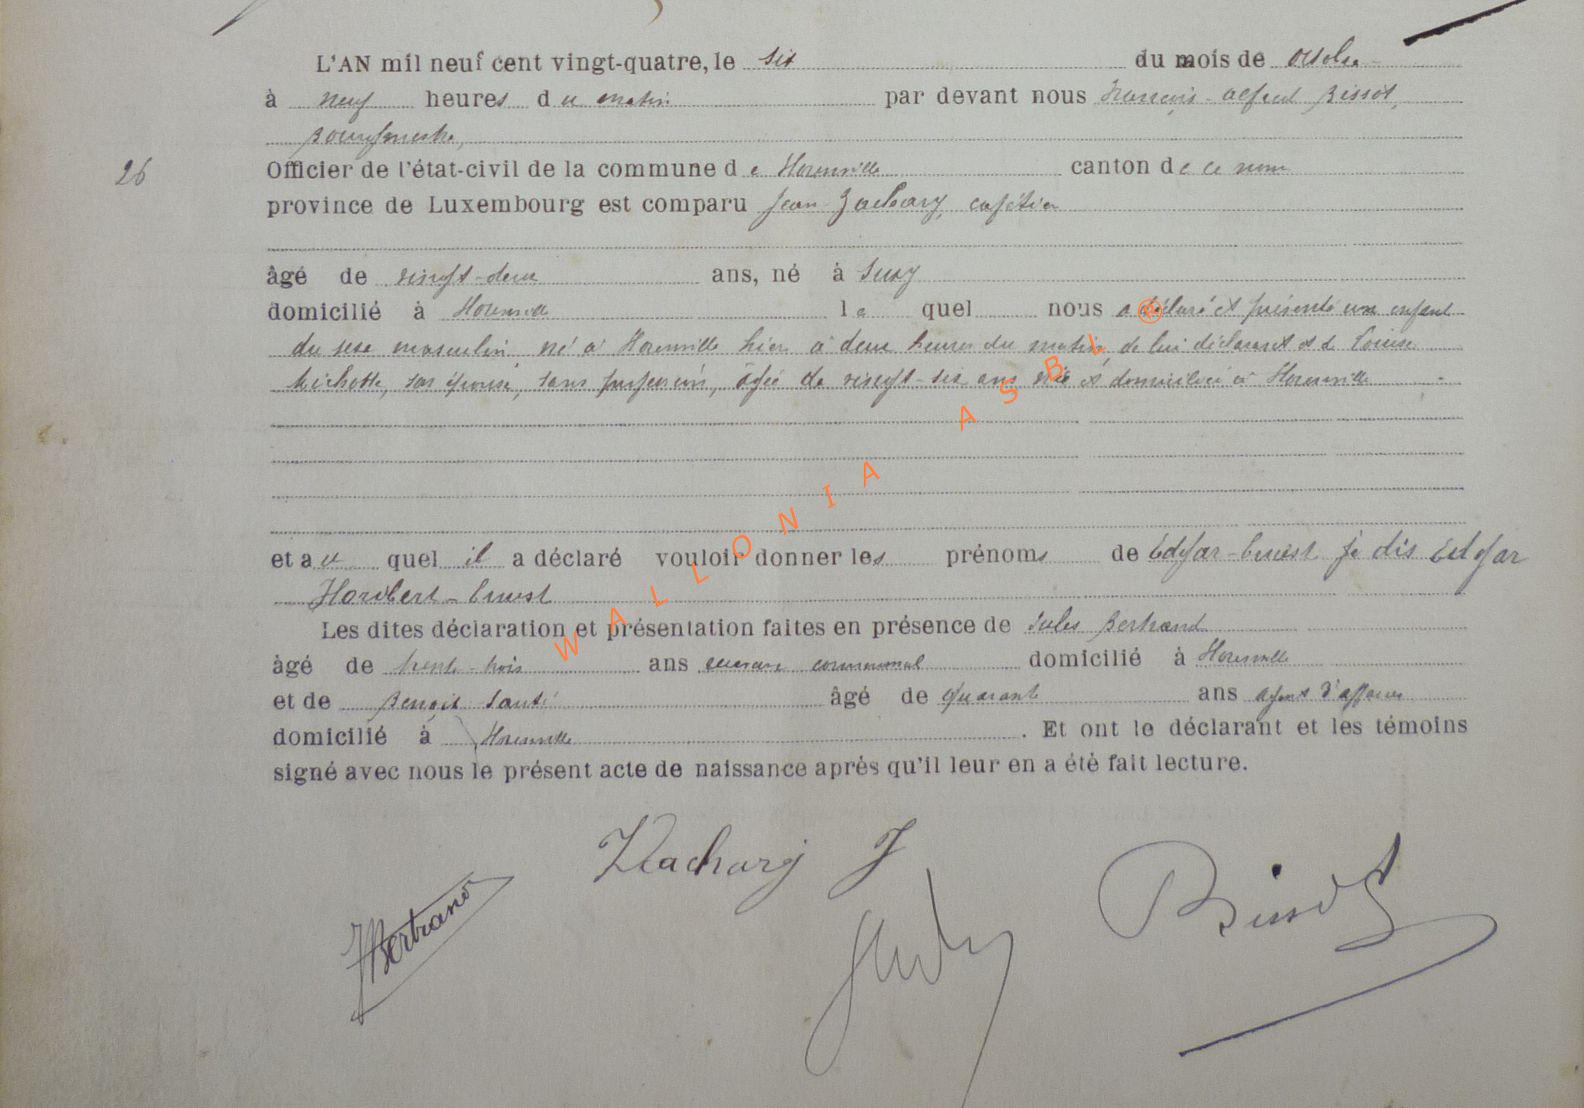 L'AN mil neuf cent vingt-quatre, le six du mois de octobre
à neuf heures du matin par devant nous François-Alfred Bissot,
Bourgmestre,
26
Officier de l'état-civil de la commune de Florenville canton de ce nom
province de Luxembourg est comparu Jean Zachary, cafétier
âgé de vingt-deux ans, né à Suxy
domicilié à Florenville lequel nous a déclaré et présenté un enfant
du sexe masculin né à Florenville hier à deux heures du matin, de lui déclarant et de Louise
Michotte, son épouse, sans profession, âgée de vingt-six ans née et domiciliée à Florenville
et auquel il a déclaré vouloir donner les prénoms de Edgar-Ernest je dis Edgar
Houbert-Ernest
Les dites déclaration et présentation faites en présence de Jules Bertrand
âgé de trente-trois ans secrétaire communal domicilié à Florenville
et de Benoit âgé de quarante ans agent d'affaires
domicilié à Florenville. Et ont le déclarant et les témoins
signé avec nous le présent acte de naissance après qu'il leur en a été fait lecture.
Zachary J
JBertrand
Bissot
WALLONIA ASBL ®